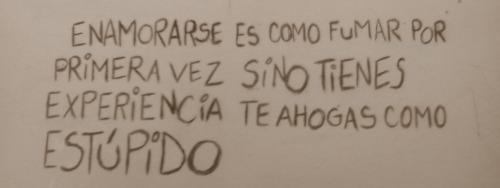 ENAMORARSE ES COMO FUMAR POR
PRIMERA VEZ SINO TIENES
EXPERIENCIA TE AHOGAS COMO
ESTÚPIDO